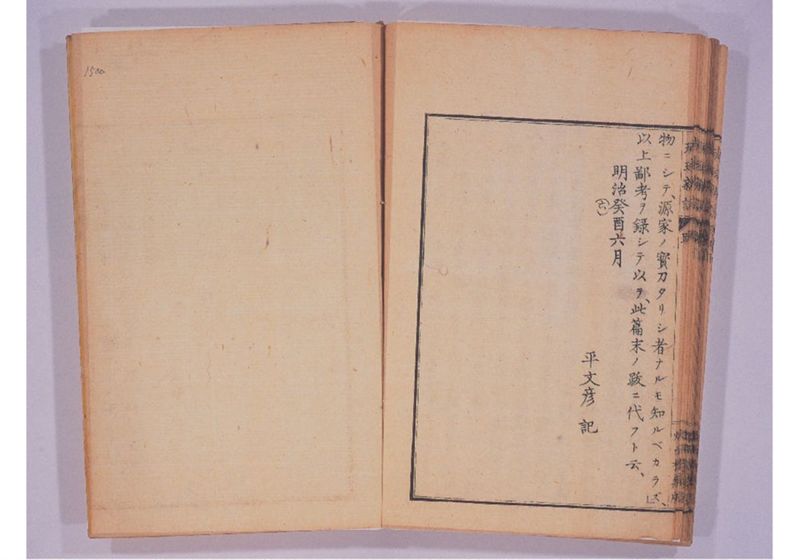 物ニシテ、源家ノ寳刀タリシ者ナルモ知ルベカラズ、
以上鄙考ヲ録シテ以テ、此篇末ノ跋ニ代フト云、
明治癸酉六月
平文彦 記
1500